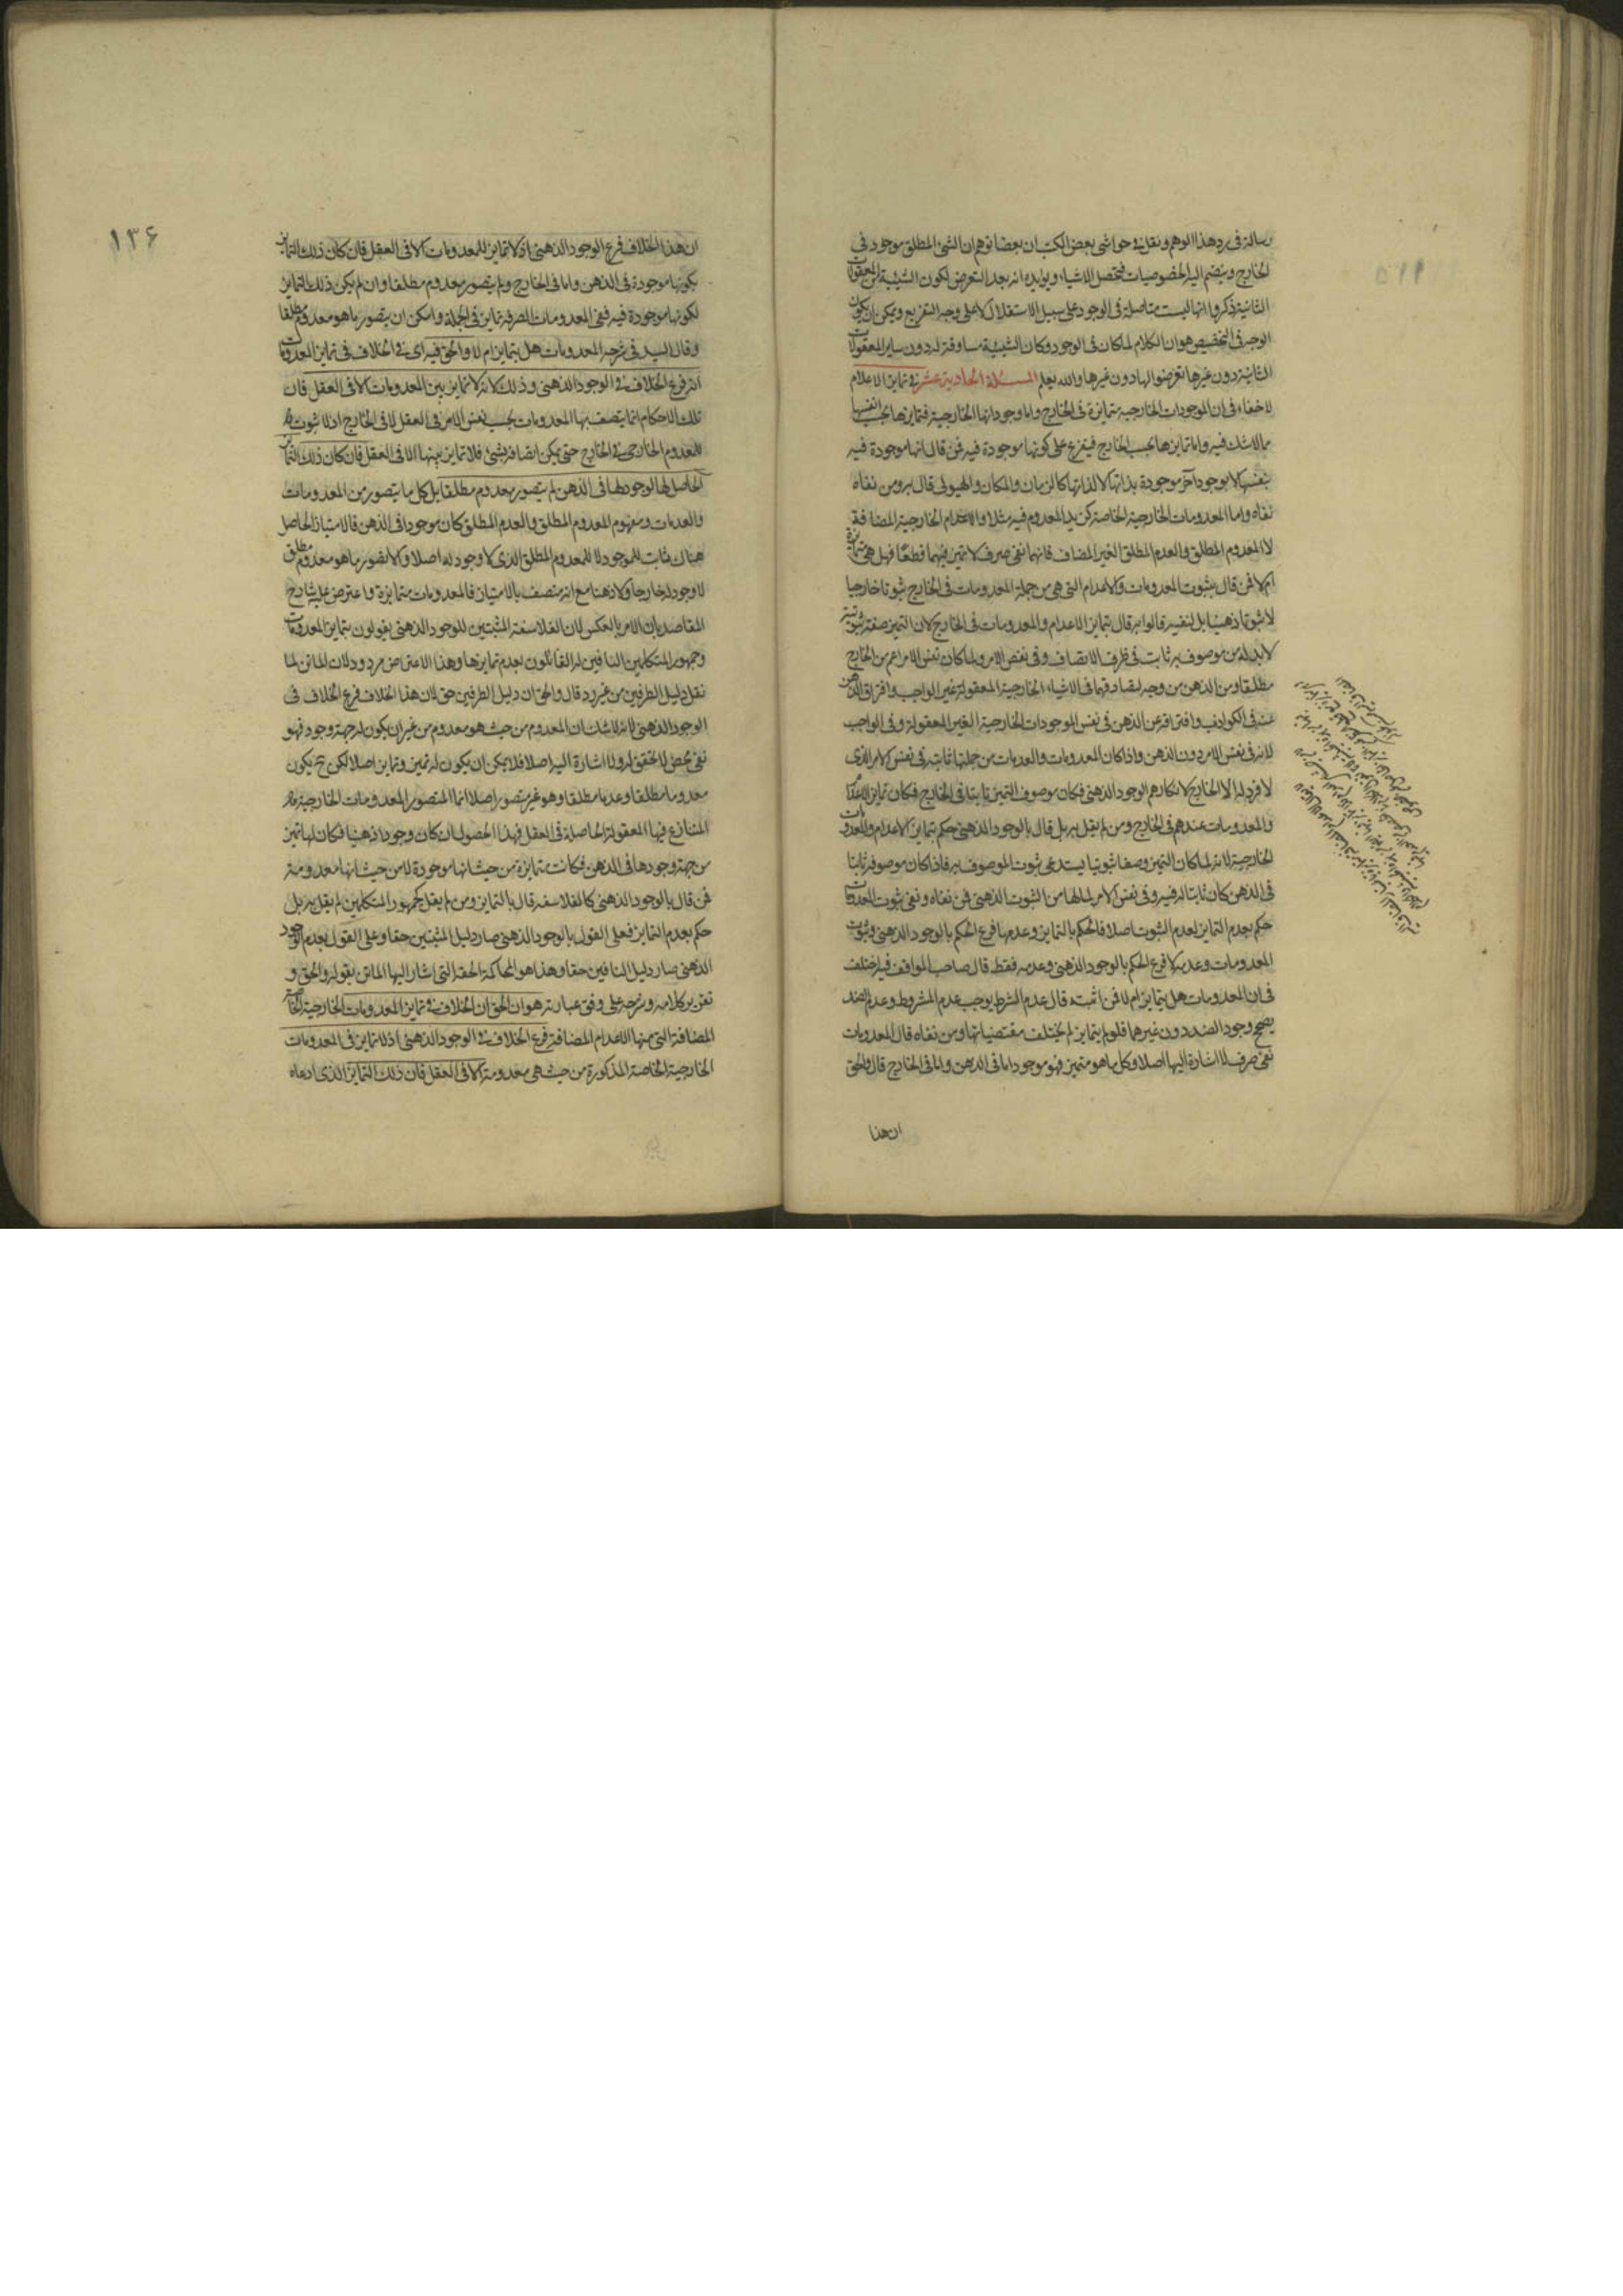 رسالة فى رد هذا الوهم ونقل فى حواشى بعض الكتب ان بعضا توهم ان الشئ المطلق موجود فى
الخارج وينضم اليه الخصوصيات فتحصل الاشياء ويؤيده انه بعد التعرض لكون الشيئية من المعقولات
الثانية ذكروا انها ليست متاصلة فى الوجود على سبيل الاستقلال لا على وجه التفريع ويمكن ان يكون
الوجه فى التخصيص هو ان الكلام لما كان فى الوجود وكان الشيئية مساوقة له دون ساير المعقولات
الثانية دون غيرها تعرضوا لها دون غيرها والله يعلم المسئلة الحادية عشر فى تمايز الاعلام
لا خفاء فى ان الموجودات الخارجية متمايزة فى الخارج واما وجوداتها الخارجية فتمايزها بحسب انفسها
مما لا شك فيه واما تمايزها بحسب الخارج فيتفرع على كونها موجودة فيه فمن قال انها موجودة فيه
بنفسها لا بوجود آخر موجودة بذاتها لا لذاتها كالزمان والمكان والهيولى قال به ومن نفاه
نفاه واما المعدومات الخارجية الخاصة كزيد المعدوم فيه مثلا والاعدام الخارجية المضافة
لا المعدوم المطلق والعدم المطلق الغير المضاف فانهما نفى صرف لا تميز فيهما قطعا فهل هى متمايزة
ام لا فمن قال بثبوت المعدومات والاعدام التى هى من جملة المعدومات فى الخارج ثبوتا خارجيا
لا ثبوتا ذهنيا بل لنفيه قالوا به قال بتمايز الاعدام والمعدومات فى الخارج لان التميز صفة ثبوتية
لا بد له من موصوف به ثابت فى ظرف الاتصاف وفى نفس الامر ولما كان نفس الامر اعم من الخارج
مطلقا ومن الذهن من وجه لصادقهما فى الاشياء الخارجية المعقولة غير الواجب وافتراق الذهن
عنه فى الكواذب وافتراقه عن الذهن فى نفس الموجودات الخارجية الغير المعقولة وفى الواجب
لانه فى نفس الامر دون الذهن واذا كان المعدومات والعدميات من جملتها ثابتة فى نفس الامر الذى
لا فرد له الا الخارج لانكارهم الوجود الذهنى فكان موصوف التميز ثابتا فى الخارج فكان تمايز الاعدام
والمعدومات عندهم فى الخارج ومن لم يقل به بل قال بالوجود الذهنى حكم بتمايز الاعدام والمعدومات
الخارجية لانه لما كان التميز وصفا ثبوتيا يستدعى ثبوت الموصوف به فاذا كان موصوفه ثابتا
فى الذهن كان ثابتا له فيه وفى نفس الامر لما لها من الثبوت الذهنى فمن نفاه ونفى ثبوت المعدومات
حكم بعدم التمايز لعدم الثبوت اصلا فالحكم بالتمايز وعدمها فرع الحكم بالوجود الذهنى وثبوت
المعدومات وعدمه لا فرع الحكم بالوجود الذهنى وعدمه فقط قال صاحب المواقف فيه اختلف
فى ان المعدومات هل يتمايز ام لا فمن اثبته قال عدم الشرط يوجب عدم المشروط وعدم الضد
يصحح وجود الضد دون غيرهما فلو لم يتمايز لم يختلف مقتضياتها ومن نفاه قال المعدومات
نفى صرف لا اشارة اليها اصلا وكل ما هو متميز فهو موجود اما فى الذهن واما فى الخارج قال والحق
ان هذا
١٣۶
ان هذا الخلاف فرع الوجود الذهنى اذ لا تمايز للمعدومات الا فى العقل فان كان ذلك التمايز
بكونها موجودة فى الذهن واما فى الخارج ولم يتصور معدوم مطلقا وان لم يكن ذلك التمايز
لكونها موجودة فيه ففى المعدومات الصرفة تمايز فى الجملة وامكن ان يتصور ما هو معدوم مطلقا
وقال السيد فى شرحه المعدومات هل يتمايز ام لا والحق فيه اى فى الخلاف فى تمايز المعدومات
انه فرع الخلاف فى الوجود الذهنى وذلك لانه لا تمايز بين المعدومات الا فى العقل فان
تلك الاحكام انما يتصف بها المعدومات بحسب نفس الامر فى العقل لا فى الخارج اذ لا ثبوت
للمعدوم الخارجى فى الخارج حتى يمكن اتصافه بشئ فلا تمايز بينها الا فى العقل فان كان ذلك التمايز
الحاصل لها لوجودها فى الذهن لم يتصور معدوم مطلقا بل كل ما يتصور من المعدومات
والعدمات ومفهوم المعدوم المطلق والعدم المطلق كان موجودا فى الذهن فالامتياز الحاصل
هناك ثابت للموجود لا للمعدوم المطلق الذى لا وجود له اصلا والا تصور ما هو معدوم مطلق
لا وجود له خارجا ولا ذهنا مع انه متصف بالامتياز فالمعدومات متمايزة واعترض عليه شارح
المقاصد بان الامر بالعكس لان الفلاسفة المثبتين للوجود الذهنى يقولون بتمايز المعدومات
وجمهور المتكلمين النافين له القائلون بعدم تمايزها وهذا الاعتراض مردود لان الماتن لما
نقل دليل الطرفين من غير رد قال والحق ان دليل الطرفين حق لان هذا الخلاف فرع الخلاف فى
الوجود الذهنى لانه لا شك ان المعدوم من حيث هو معدوم من غير ان يكون له جهة وجود فهو
نفى محض لا تحقق له ولا اشارة اليه اصلا فلا يمكن ان يكون له تميز وتمايز اصلا لكن ح يكون
معدوما مطلقا وعدما مطلقا وهو غير متصور اصلا انما المتصور المعدومات الخارجية
المتنازع فيها المعقولة الحاصلة فى العقل فهذا الحصول ان كان وجودا ذهنيا فكان لها تميز
من جهة وجودها فى الذهن فكانت متمايزة من حيث انها موجودة لا من حيث انها معدومة
فمن قال بالوجود الذهنى كالفلاسفة قال بالتمايز ومن لم يقل كجمهور المتكلمين لم يقل به بل
حكم بعدم التمايز فعلى القول بالوجود الذهنى صار دليل المثبتين حقا وعلى القول بعدم الوجود
الذهنى صار دليل النافين حقا وهذا هو المحاكمة الحقة التى اشار اليها الماتن بقوله والحق و
تقرير كلامه وشرحه على وفق عبارته هو ان الحق ان الخلاف فى تمايز المعدومات الخارجية الخاصة
المضافة التى منها الاعدام المضافة فرع الخلاف فى الوجود الذهنى اذ لا تمايز فى المعدومات
الخارجية الخاصة المذكورة من حيث هى معدومة الا فى العقل فان ذلك التمايز الذى ادعاه